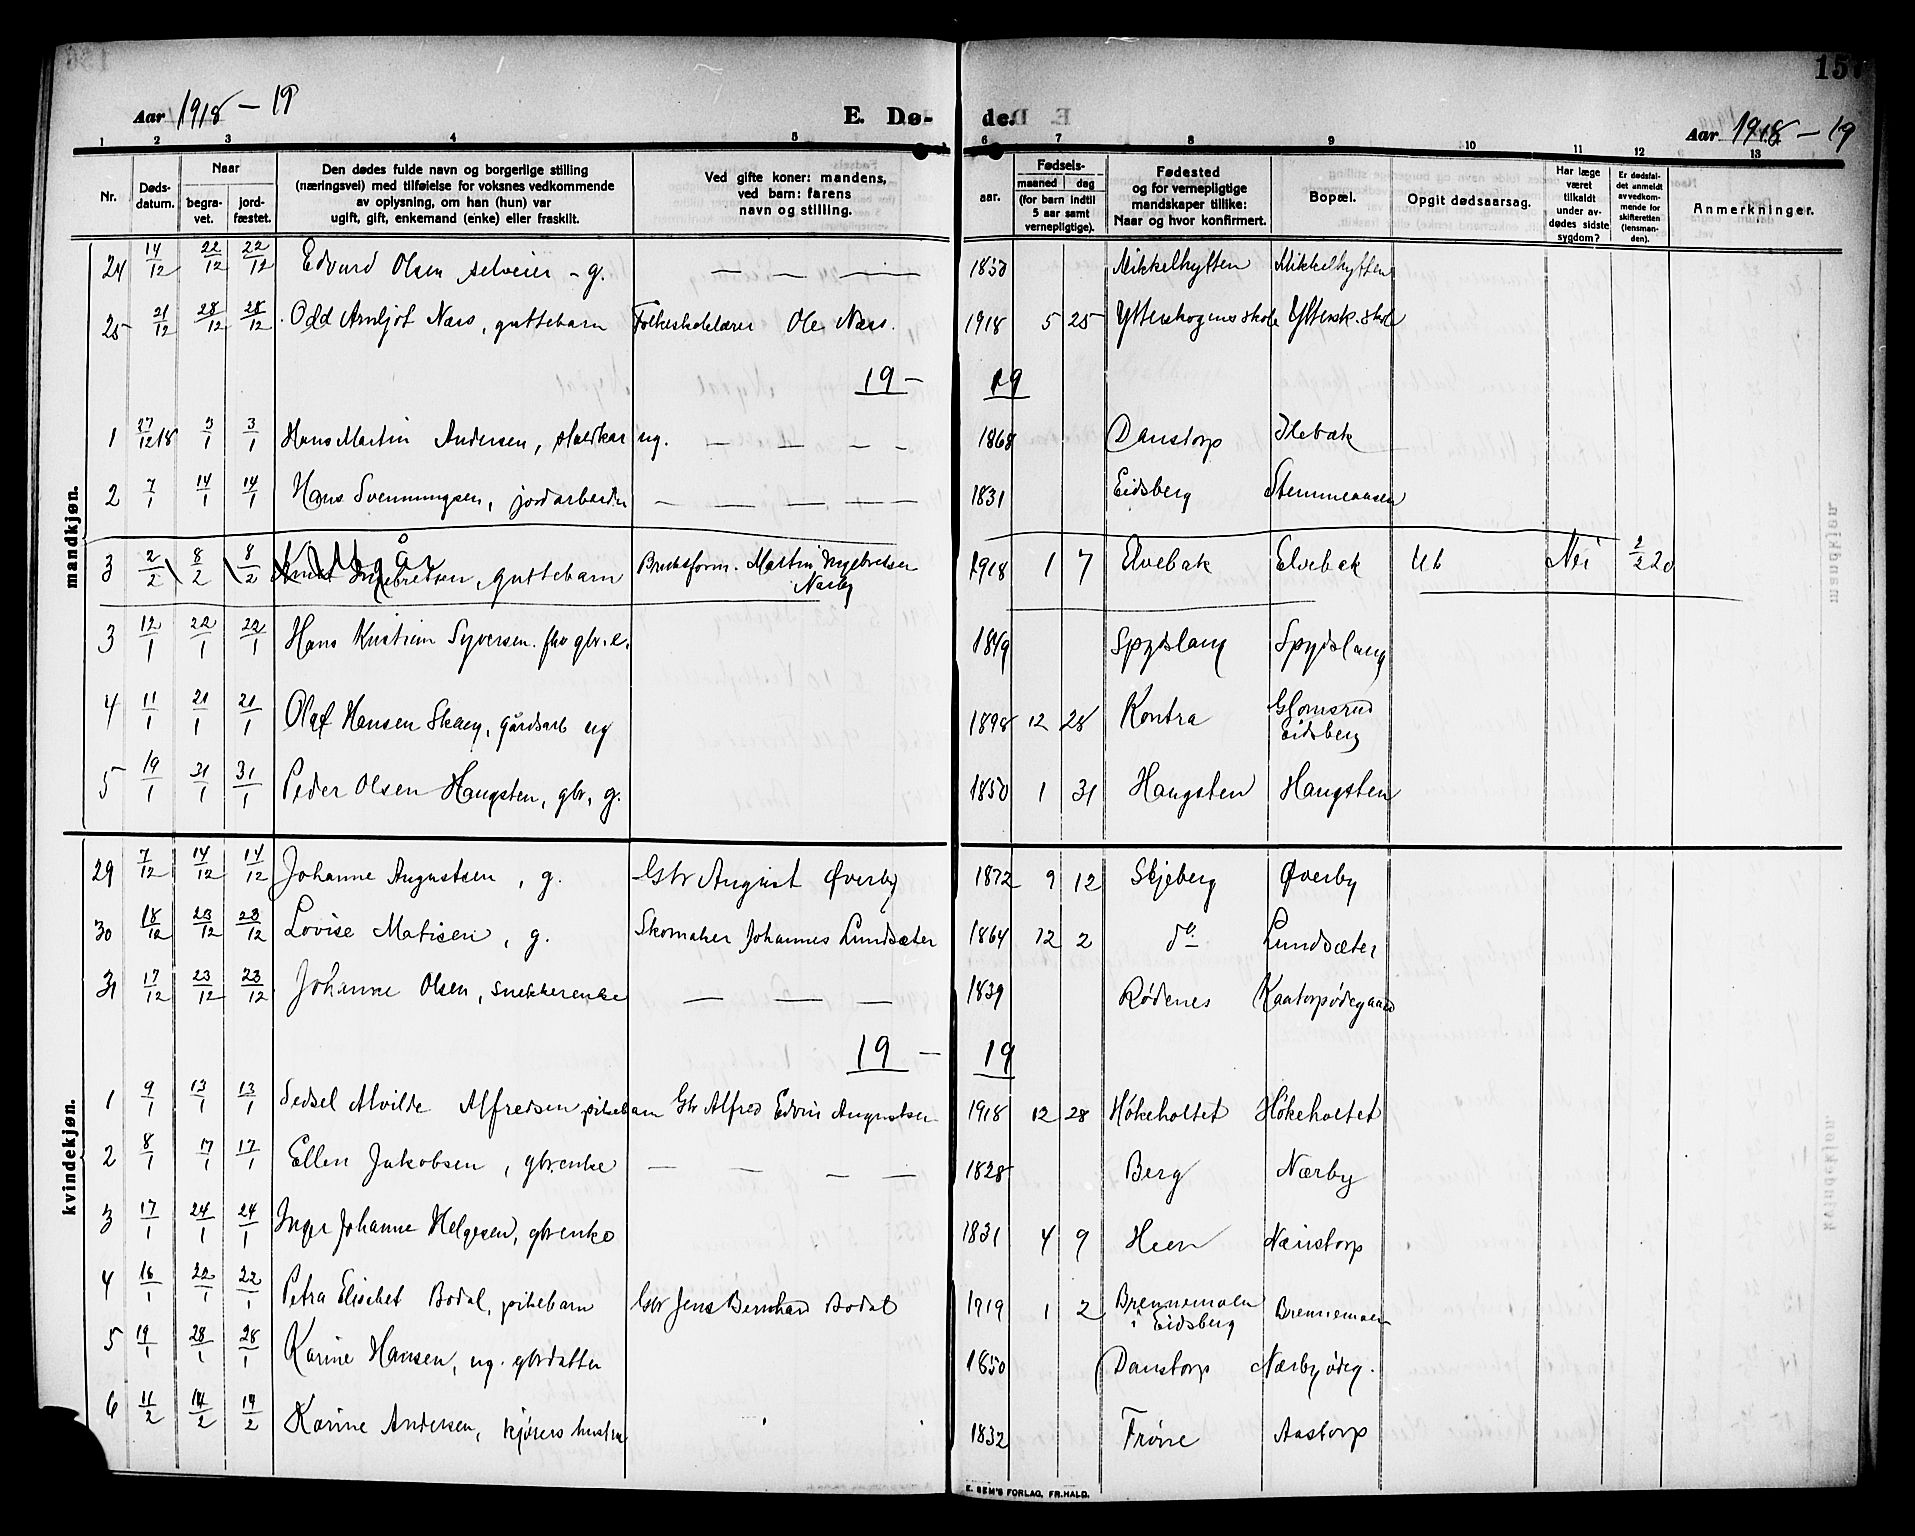 Aar 1918 – 19
E. Dø- de.
157
Aar 1918 – 19
1 2 3 4 5 6 7 8 9 10 11 12 13
Nr. Døds-datum. Naar begra-vet. jord-fæstet. Den dødes fulde navn og borgerlige stilling (næringsvei) med tilføielse for voksnes vedkommende av oplysning, om han (hun) var ugift, gift, enkemand (enke) eller fraskilt. Ved gifte koner: mandens, ved barn: farens navn og stilling. aar. Fødsels- maaned dag (for barn indtil 5 aar samt vernepligtige). Fødested og for vernepligtige mandskaper tillike: Naar og hvor konfirmert. Bopæl. Opgit dødsaarsag. Har læge været tilkaldt under av-dødes sidste sygdom? Er dødsfal-det anmeldt av vedkom-mende for skifteretten (lensman-den). Anmerkninger.
mandkjøn.
24 14/12 22/12 22/12 Edvard Olsen selveier – g. — — — 1850 Mikkelhytten Mikkelhytten
25 21/12 28/12 28/12 Odd Arnljot Næss, guttebarn Folkeskolelærer Ole Næss. 1918 5 25 Ytterskogens skole Yttersk. skole
19 – 19
1 27/12 18 3/1 3/1 Hans Martin Andersen, staldkar ug. — — — 1868 Danstorp Ilebæk
2 7/1 14/1 14/1 Hans Svenningsen, jordarbeider — — — 1831 Eidsberg
3 2/2 8/2 8/2 Ingebretsen, guttebarn Martin Ingebretsen Nærby 1918 1 7 Elvebæk Elvebæk Nei 2/2 20
Utgår
3 12/1 22/1 22/1 Hans Kristian Syversen. fhv gbr. e. 1849 Spydslaug Spydslaug
4 11/1 21/1 21/1 Olaf Hansen Skaug, gårdsarb ug 1898 12 28 Kontra Glomsrud Eidsberg
5 19/1 31/1 31/1 Peder Olsen Haugsten, gbr. g. 1850 1 31 Haugsten Haugsten
kvindekjøn.
29 7/12 14/12 14/12 Johanne Augustsen, g. Gbr August Øverby 1872 9 12 Skjeberg Øverby
30 18/12 23/12 23/12 Lovise Matisen, g. Skomaker Johannes Lundsæter 1864 12 2 do Lundsæter
31 17/12 23/12 23/12 Johanne Olsen, snekkerenke — — — 1839 Rødenes Kaatorpødegaard
19 – 19
1 9/1 13/1 13/1 Sedsel Alvilde Alfredsen pikebarn Gbr Alfred Edvin Augustsen 1918 12 28 Høkeholtet Høkeholtet
2 8/1 17/1 17/1 Ellen Jakobsen, gbrenke — — — — 1828 Berg Nærby
3 17/1 24/1 24/1 Inger Johanne Helgesen, gbrenke 1831 4 9 Heen Nænstorp
4 16/1 22/1 22/1 Petra Elisebet Bodal, pikebarn Gbr Jens Bernhard Bodal 1919 1 2 Brennemoen i Eidsberg Brennemoen
5 19/1 28/1 28/1 Karine Hansen, ug. gbrdatter 1850 Danstorp Nærby ødeg.
6 11/2 14/2 14/2 Karine Andersen, kjørers hustru 1832 Frøne Aastorp
E. SEM'S FORLAG, FR.HALD.